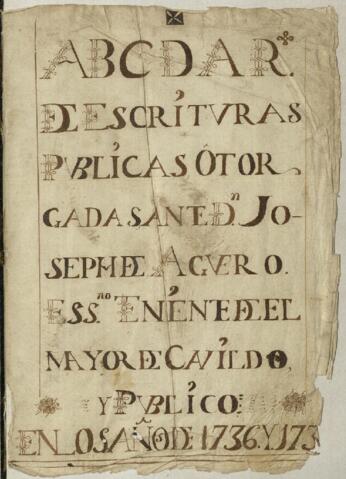 ABCDAR.º
DE ESCRÍTVRAS
PVBLÍCAS ÔTOR
GADAS ANTE D.n JO-
SEPH DE AGVERO.
ESS.no TENÍENTE DE EL
MAYOR DE CAVILDO,
Y PVBLÍCO
EN LOS AÑOS DE 1736. Y 173